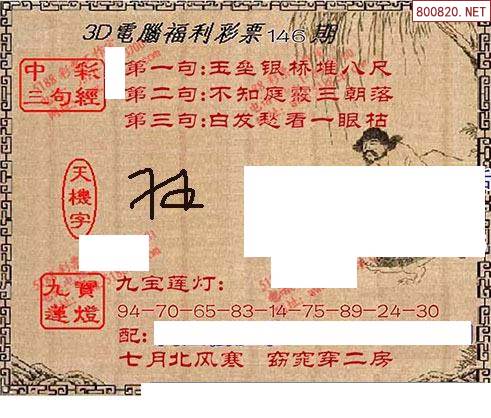 800820.NET
3D電腦福利彩票146期
中彩三句經
第一句:玉垒银桥堆八尺
第二句:不知庭霰三朝落
第三句:白发愁看一眼枯
天機字
九寶蓮燈
九宝莲灯:
94-70-65-83-14-75-89-24-30
配:
七月北风寒 窈窕穿二房